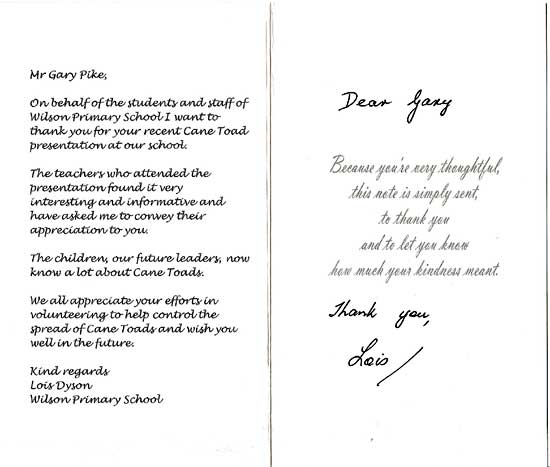 Mr Gary Pike,
On behalf of the students and staff of
Wilson Primary School I want to
thank you for your recent Cane Toad
presentation at our school.
The teachers who attended the
presentation found it very
interesting and informative and
have asked me to convey their
appreciation to you.
The children, our future leaders, now
know a lot about Cane Toads.
We all appreciate your efforts in
volunteering to help control the
spread of Cane Toads and wish you
well in the future.
Kind regards
Lois Dyson
Wilson Primary School
Dear Gary
Because you're very thoughtful,
this note is simply sent,
to thank you
and to let you know
how much your kindness meant.
Thank you,
Lois